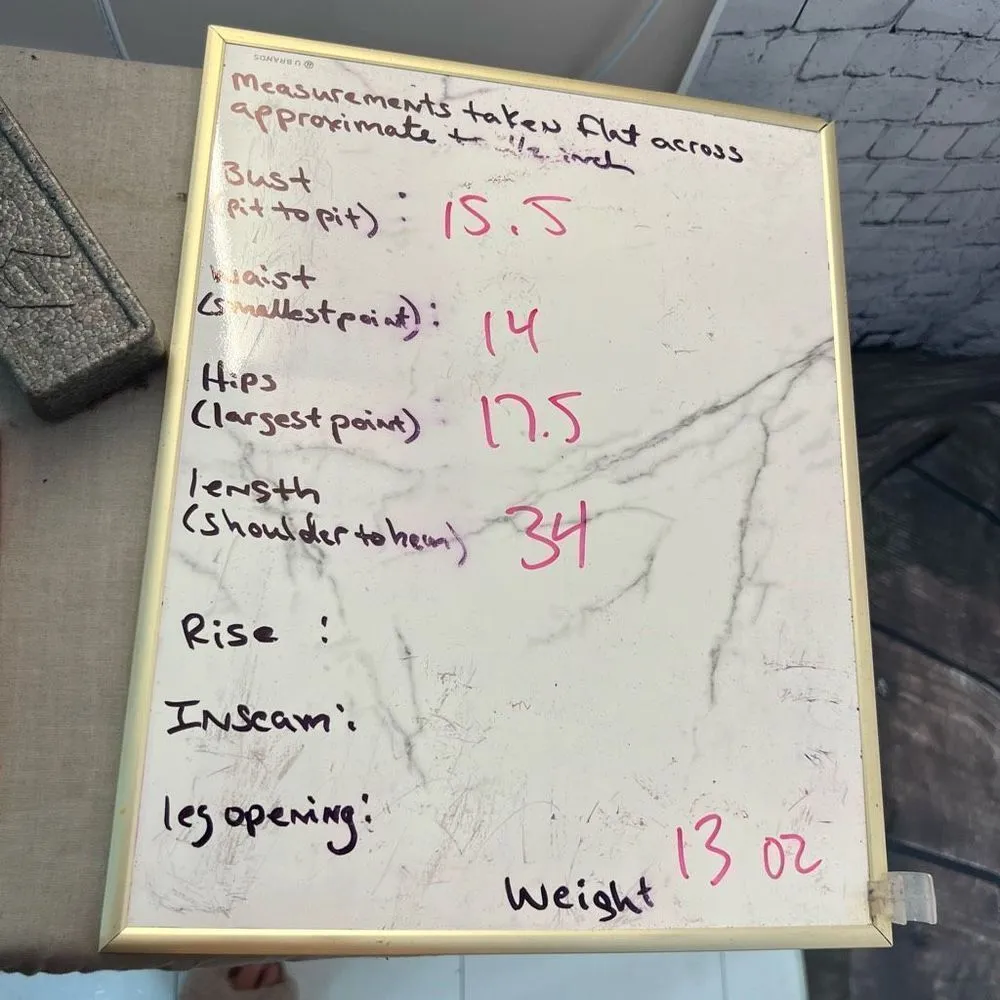 U BRANDS
Measurements taken flat across
approximate to 1/2 inch
Bust
(pit to pit) : 15.5
Waist
(smallest point) : 14
Hips
(largest point) : 17.5
length
(shoulder to hem) 34
Rise :
Inseam :
leg opening :
13 oz
Weight